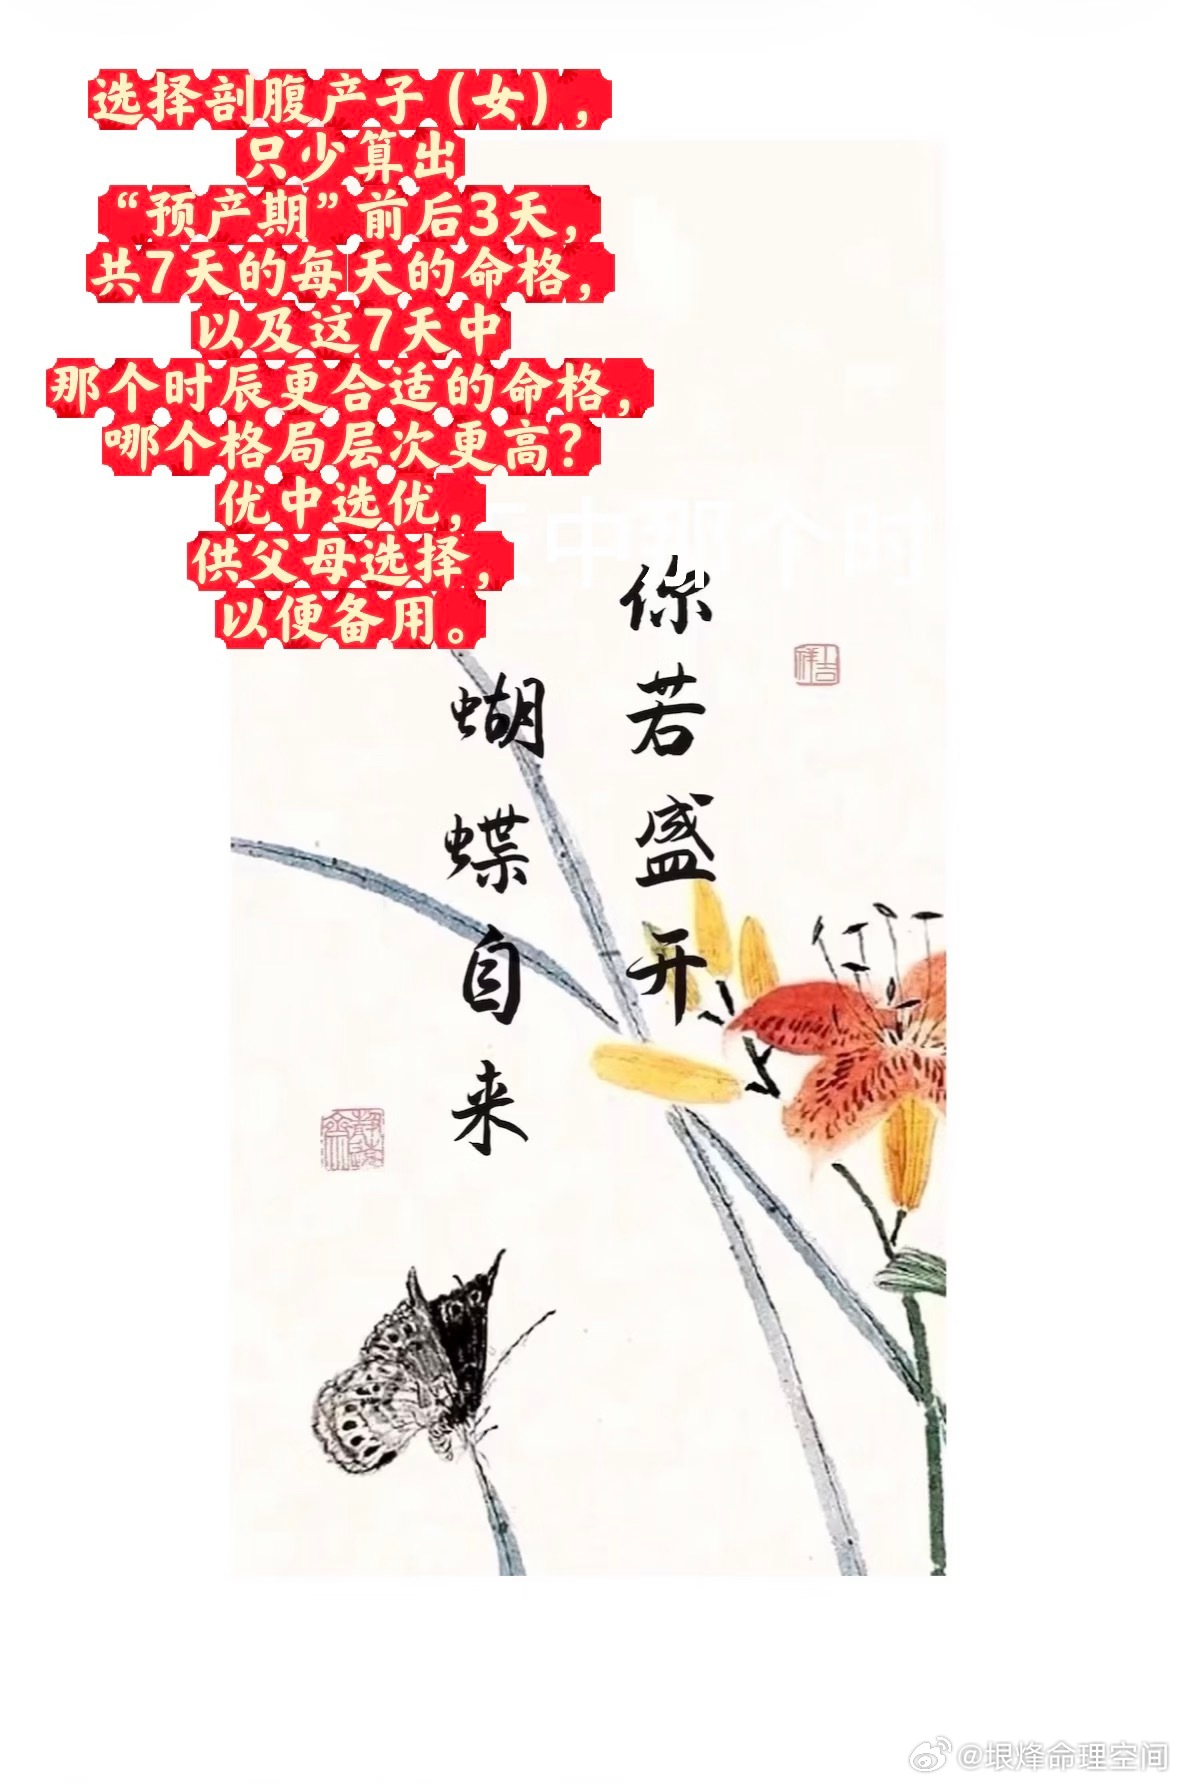 选择剖腹产子（女），
只少算出
“预产期”前后3天，
共7天的每天的命格，
以及这7天中
那个时辰更合适的命格，
哪个格局层次更高？
优中选优，
供父母选择，
以便备用。
你若盛开
蝴蝶自来
吉祥
@垠烽命理空间